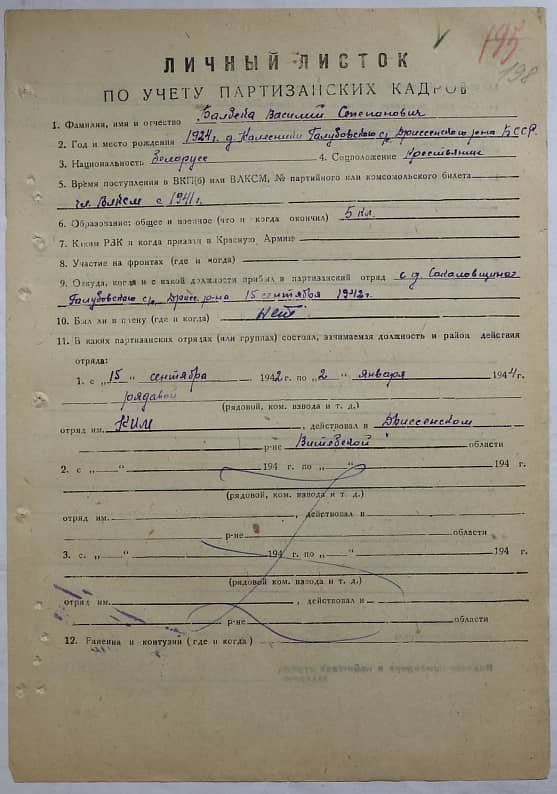 195
198
ЛИЧНЫЙ ЛИСТОК
ПО УЧЕТУ ПАРТИЗАНСКИХ КАДРОВ
1. Фамилия, имя и отчество Балвека Василий Степанович
2. Год и место рождения 1924г. д. Каменики Галубовского с/с, Дриссенского р-на БССР.
3. Национальность Белорусс 4. Соцположение Крестьянин
5. Время поступления в ВКП(б) или ВЛКСМ, № партийного или комсомольского билета
чл. ВЛКСМ с 1941г.
6. Образование: общее и военное (что и когда окончил) 5 кл.
7. Каким РВК и когда призван в Красную Армию
8. Участие на фронтах (где и когда)
9. Откуда, когда и с какой должности прибыл в партизанский отряд с д. Сакаловщина
Галубовского с/с, Дрисс. р-на 15 сентября 1942г.
10. Был ли в плену (где и когда) Нет
11. В каких партизанских отрядах (или группах) состоял, занимаемая должность и район действия
отряда:
1. с „15 “ сентября 1942 г. по „2 “ января 1944 г.
рядавой
(рядовой, ком. взвода и т. д.)
отряд им. КИМ , действовал в Дриссенском
р-не Витебской области
2. с „ “ 194 г. по „ “ 194 г.
(рядовой, ком. взвода и т. д.)
отряд им. , действовал в
р-не области
3. с „ “ 194 г. по „ “ 194 г.
(рядовой, ком. взвода и т. д.)
отряд им. , действовал в
р-не области
12. Ранения и контузии (где и когда)